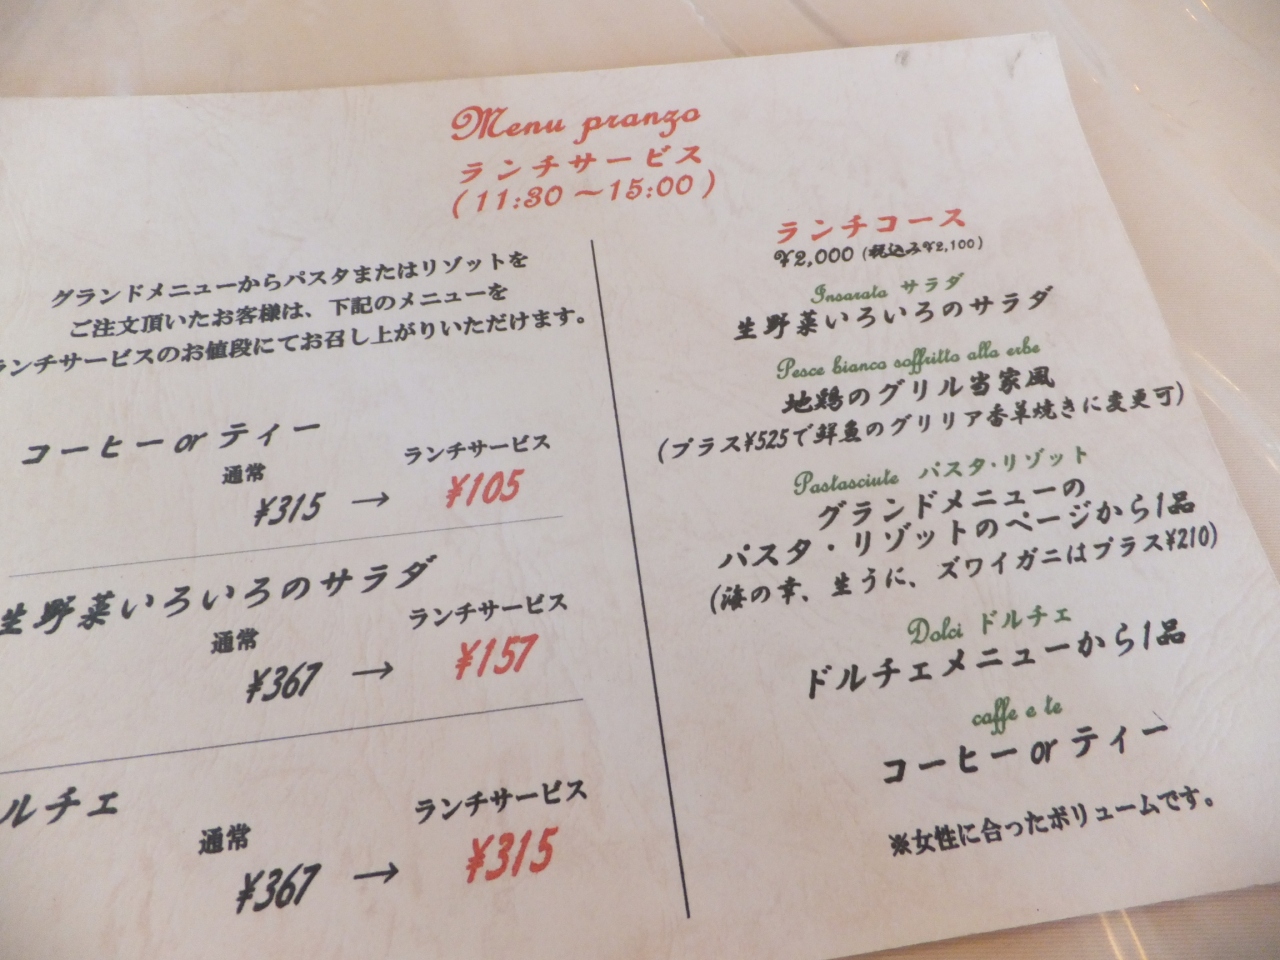 Menu pranzo
ランチサービス
(11:30～15:00)
グランドメニューからパスタまたはリゾットを
ご注文頂いたお客様は、下記のメニューを
ランチサービスのお値段にてお召し上がりいただけます。
コーヒー or ティー
通常 ランチサービス
¥315 → ¥105
生野菜いろいろのサラダ
通常 ランチサービス
¥367 → ¥157
ルチェ
通常 ランチサービス
¥367 → ¥315
ランチコース
¥2,000 (税込み¥2,100)
Insarata サラダ
生野菜いろいろのサラダ
Pesce bianco soffritto alla erbe
地鶏のグリル当家風
(プラス¥525で鮮魚のグリリア香草焼きに変更可)
Pastasciute パスタ・リゾット
グランドメニューの
パスタ・リゾットのページから1品
(海の幸、生うに、ズワイガニはプラス¥210)
Dolci ドルチェ
ドルチェメニューから1品
caffe e te
コーヒー or ティー
※女性に合ったボリュームです。